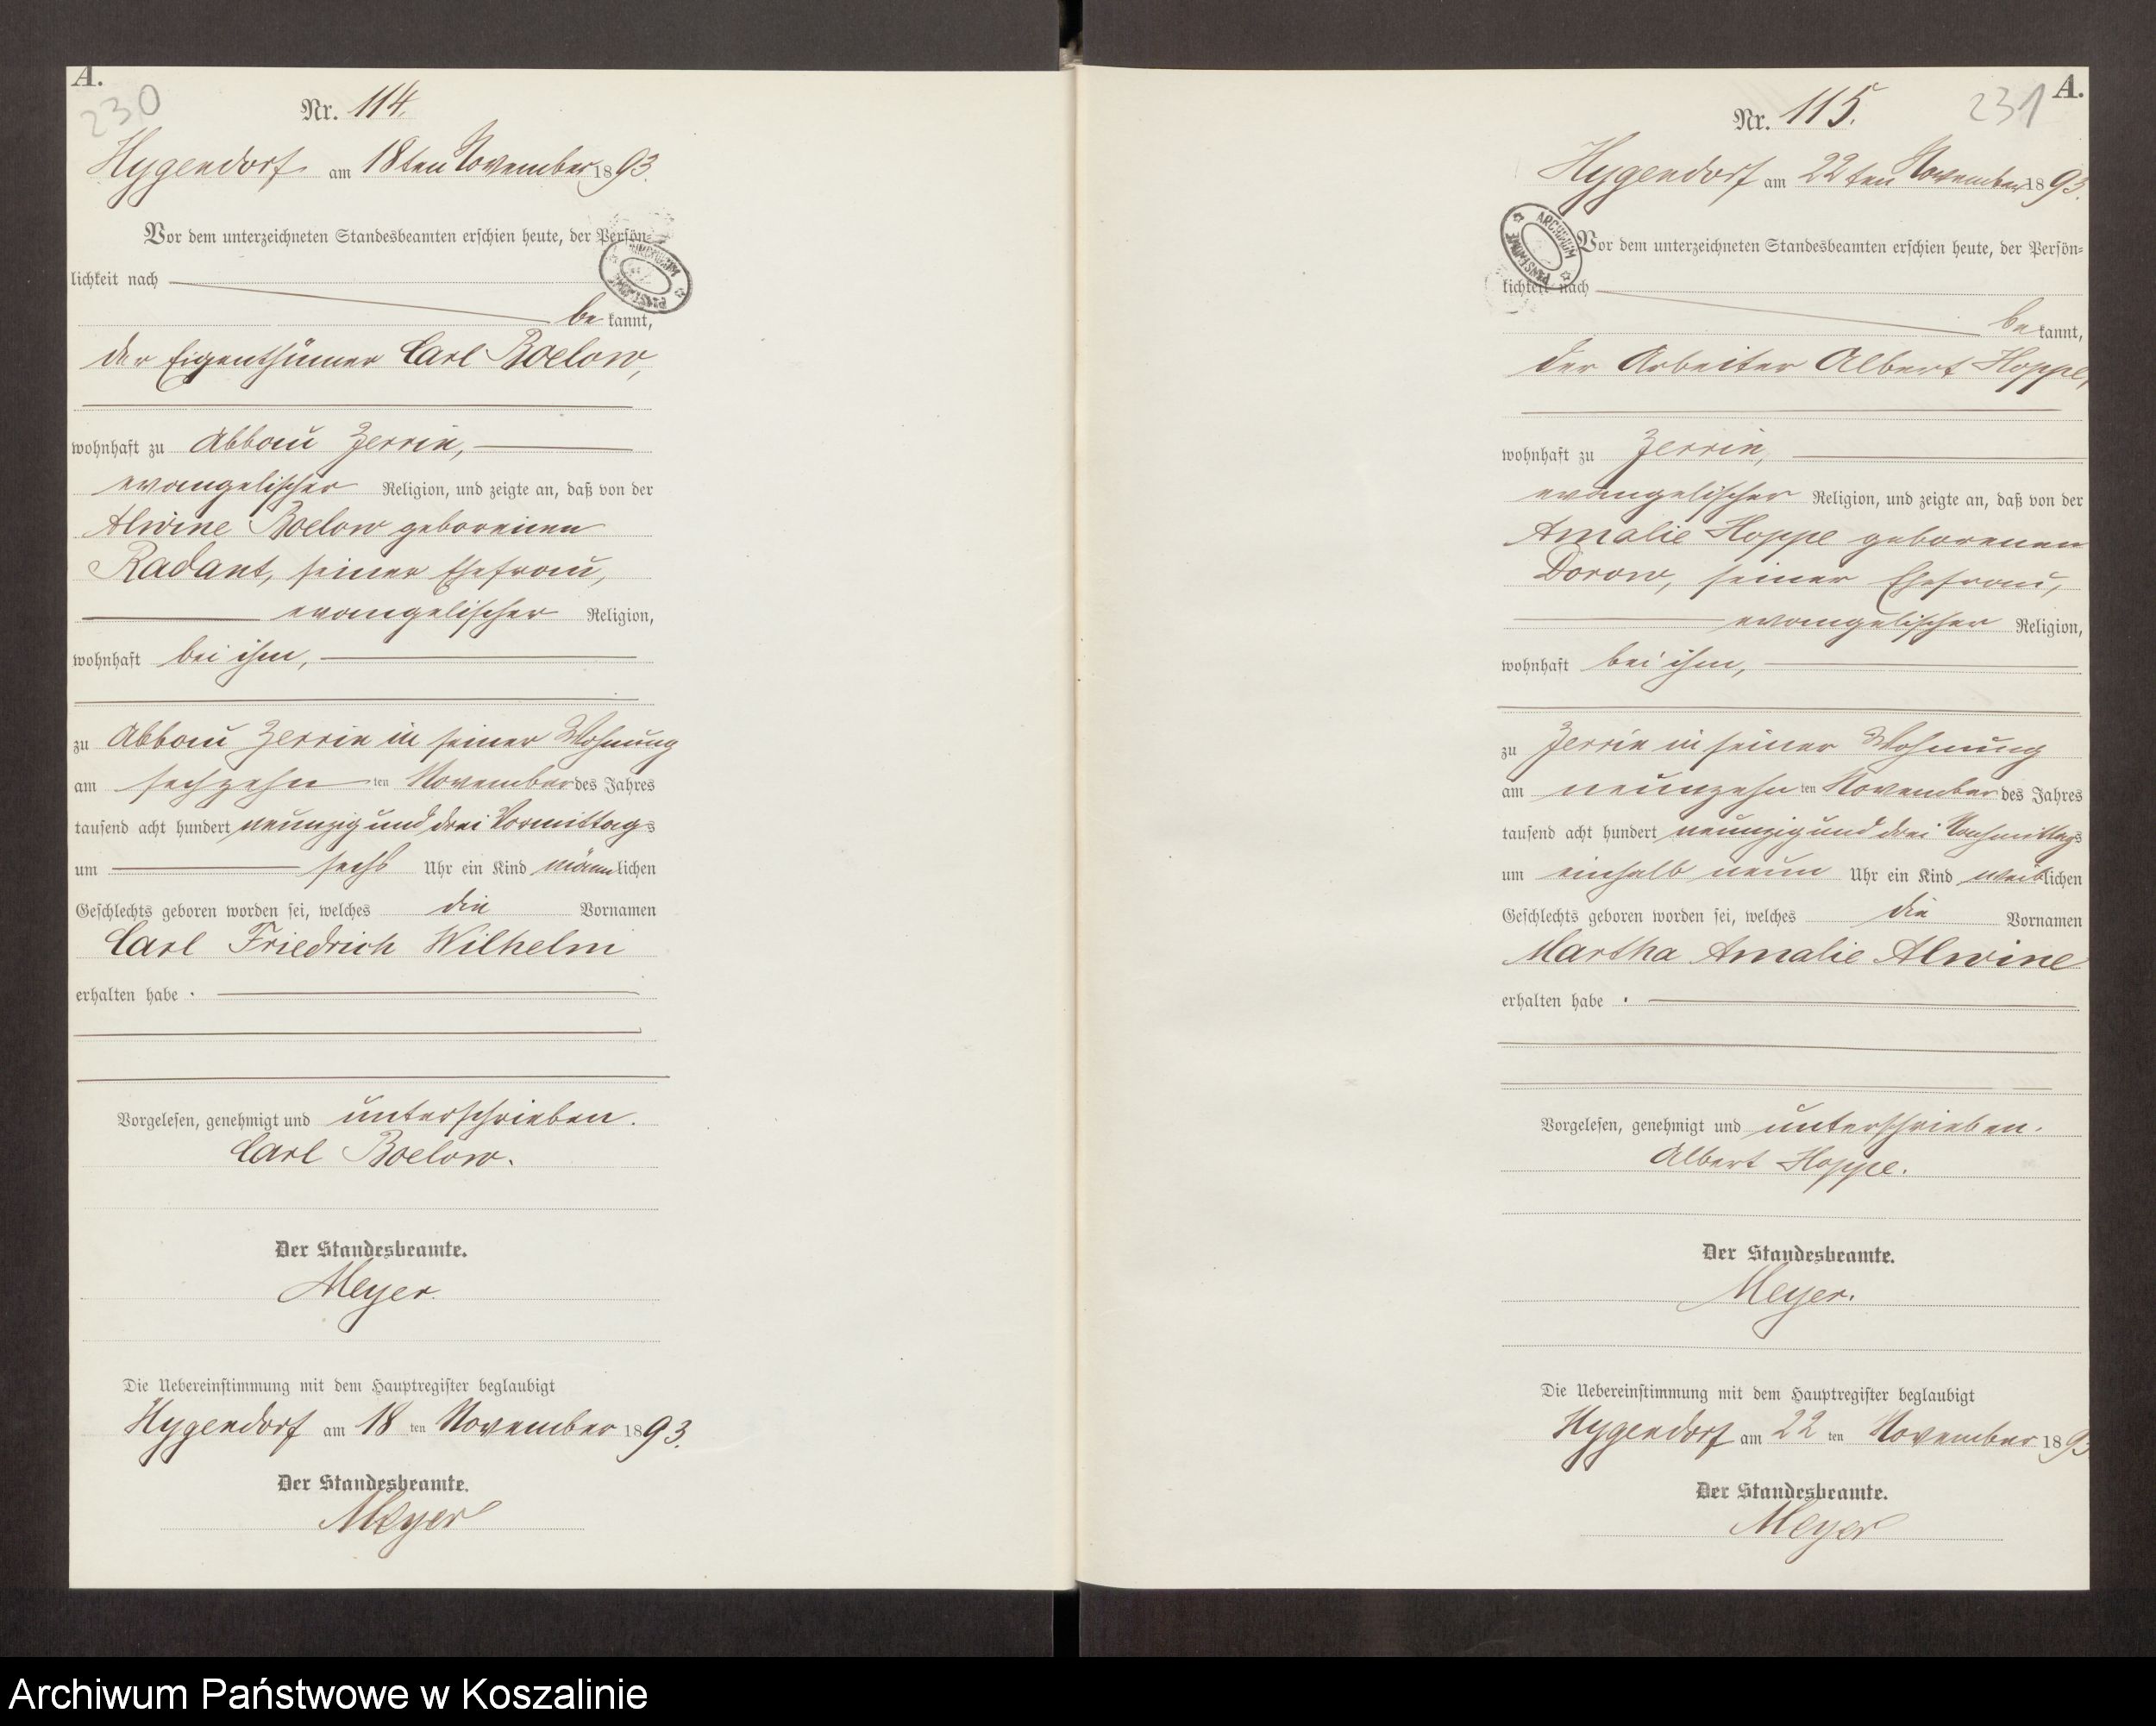 A.
230
Nr. 114.
Hygendorf am 18ten November 1893.
Vor dem unterzeichneten Standesbeamten erschien heute, der Persön=
lichkeit nach
be kannt,
der Eigenthümer Carl Boelow,
wohnhaft zu Abbau Zerrin,
evangelischer Religion, und zeigte an, daß von der
Alwine Boelow geborenen
Radant, seiner Ehefrau,
evangelischer Religion,
wohnhaft bei ihm,
zu Abbau Zerrin in seiner Wohnung
am sechzehn ten November des Jahres
tausend acht hundert neunzig und drei Vormittags
um sechs Uhr ein Kind männlichen
Geschlechts geboren worden sei, welches die Vornamen
Carl Friedrich Wilhelm
erhalten habe.
Vorgelesen, genehmigt und unterschrieben.
Carl Boelow.
Der Standesbeamte.
Meyer.
Die Uebereinstimmung mit dem Hauptregister beglaubigt
Hygendorf am 18 ten November 1893.
Der Standesbeamte.
Meyer
A.
231
Nr. 115.
Hygendorf am 22ten November 1893.
ARCHIWUM PAŃSTWOWE
Vor dem unterzeichneten Standesbeamten erschien heute, der Persön=
lichkeit nach
be kannt,
der Arbeiter Albert Hoppe,
wohnhaft zu Zerrin,
evangelischer Religion, und zeigte an, daß von der
Amalie Hoppe geborenen
Dorow, seiner Ehefrau,
evangelischer Religion,
wohnhaft bei ihm,
zu Zerrin in seiner Wohnung
am neunzehn ten November des Jahres
tausend acht hundert neunzig und drei Nachmittags
um einhalb neun Uhr ein Kind weiblichen
Geschlechts geboren worden sei, welches die Vornamen
Martha Amalie Alwine
erhalten habe.
Vorgelesen, genehmigt und unterschrieben.
Albert Hoppe.
Der Standesbeamte.
Meyer.
Die Uebereinstimmung mit dem Hauptregister beglaubigt
Hygendorf am 22 ten November 1893
Der Standesbeamte.
Meyer
Archiwum Państwowe w Koszalinie